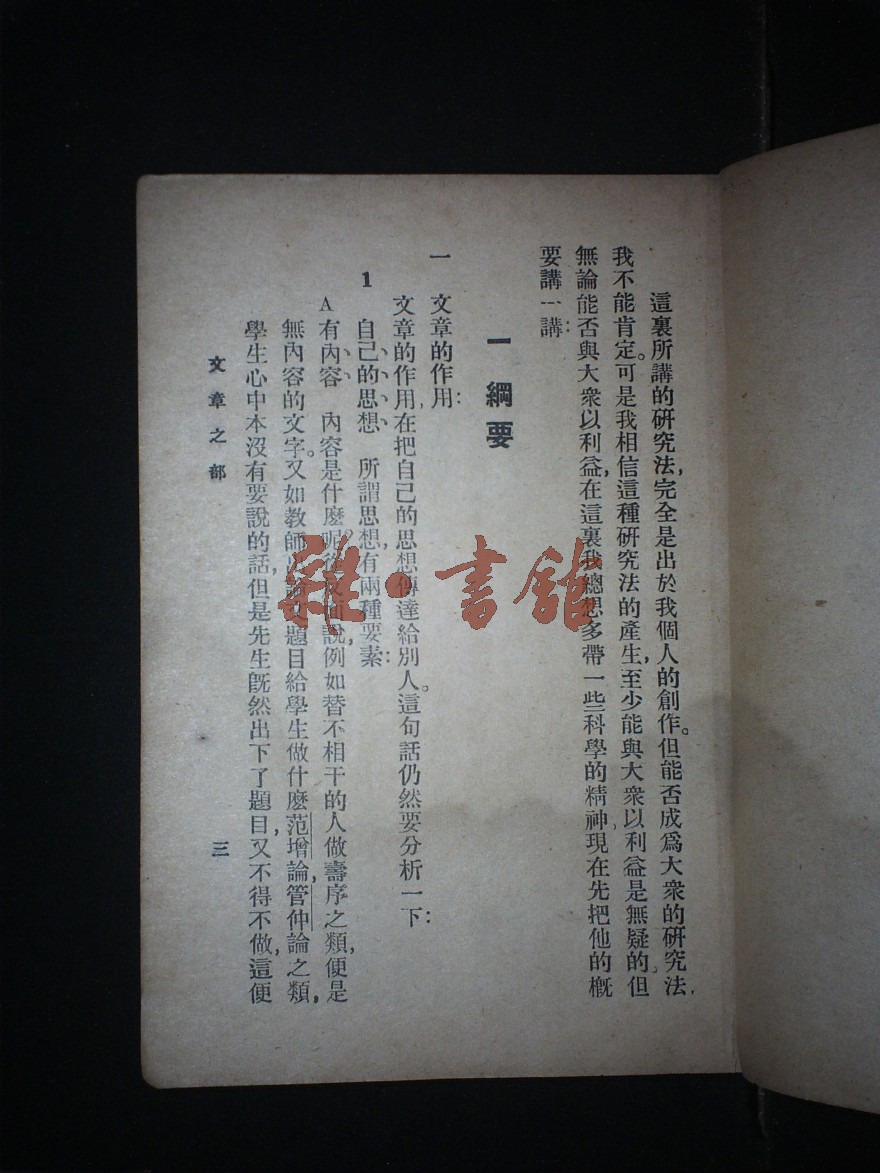 這裏所講的研究法,完全是出於我個人的創作。但能否成爲大衆的研究法,
我不能肯定。可是我相信這種研究法的產生,至少能與大衆以利益是無疑的。但
無論能否與大衆以利益,在這裏我總想多帶一些科學的精神,現在先把他的概
要講一講:
一 綱要
一 文章的作用:
文章的作用,在把自己的思想傳達給別人。這句話仍然要分析一下:
1 自己的思想 所謂思想,有兩種要素:
A 有內容 內容是什麼呢?從反面說,例如替不相干的人做壽序之類,便是
無內容的文字。又如教師出題目給學生做什麼范增論,管仲論之類,
學生心中本沒有要說的話,但是先生既然出下了題目,又不得不做,這便
文章之部
三
雜·書館